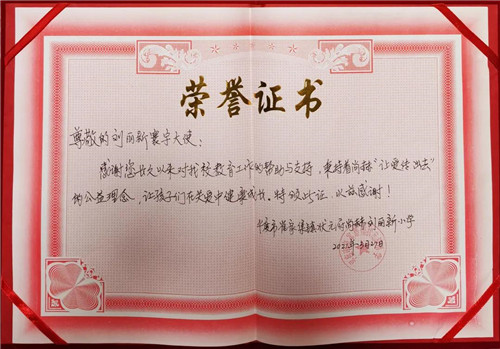 荣誉证书
尊敬的刘丽新寰宇大使：
感谢您长久以来对我校教育工作的帮助与支持，秉持着尚赫“让爱传出去”
的公益理念，让孩子们在关爱中健康成长。特颁此证，以致感谢！
状元府尚赫刘丽新小学
2022年3月27日